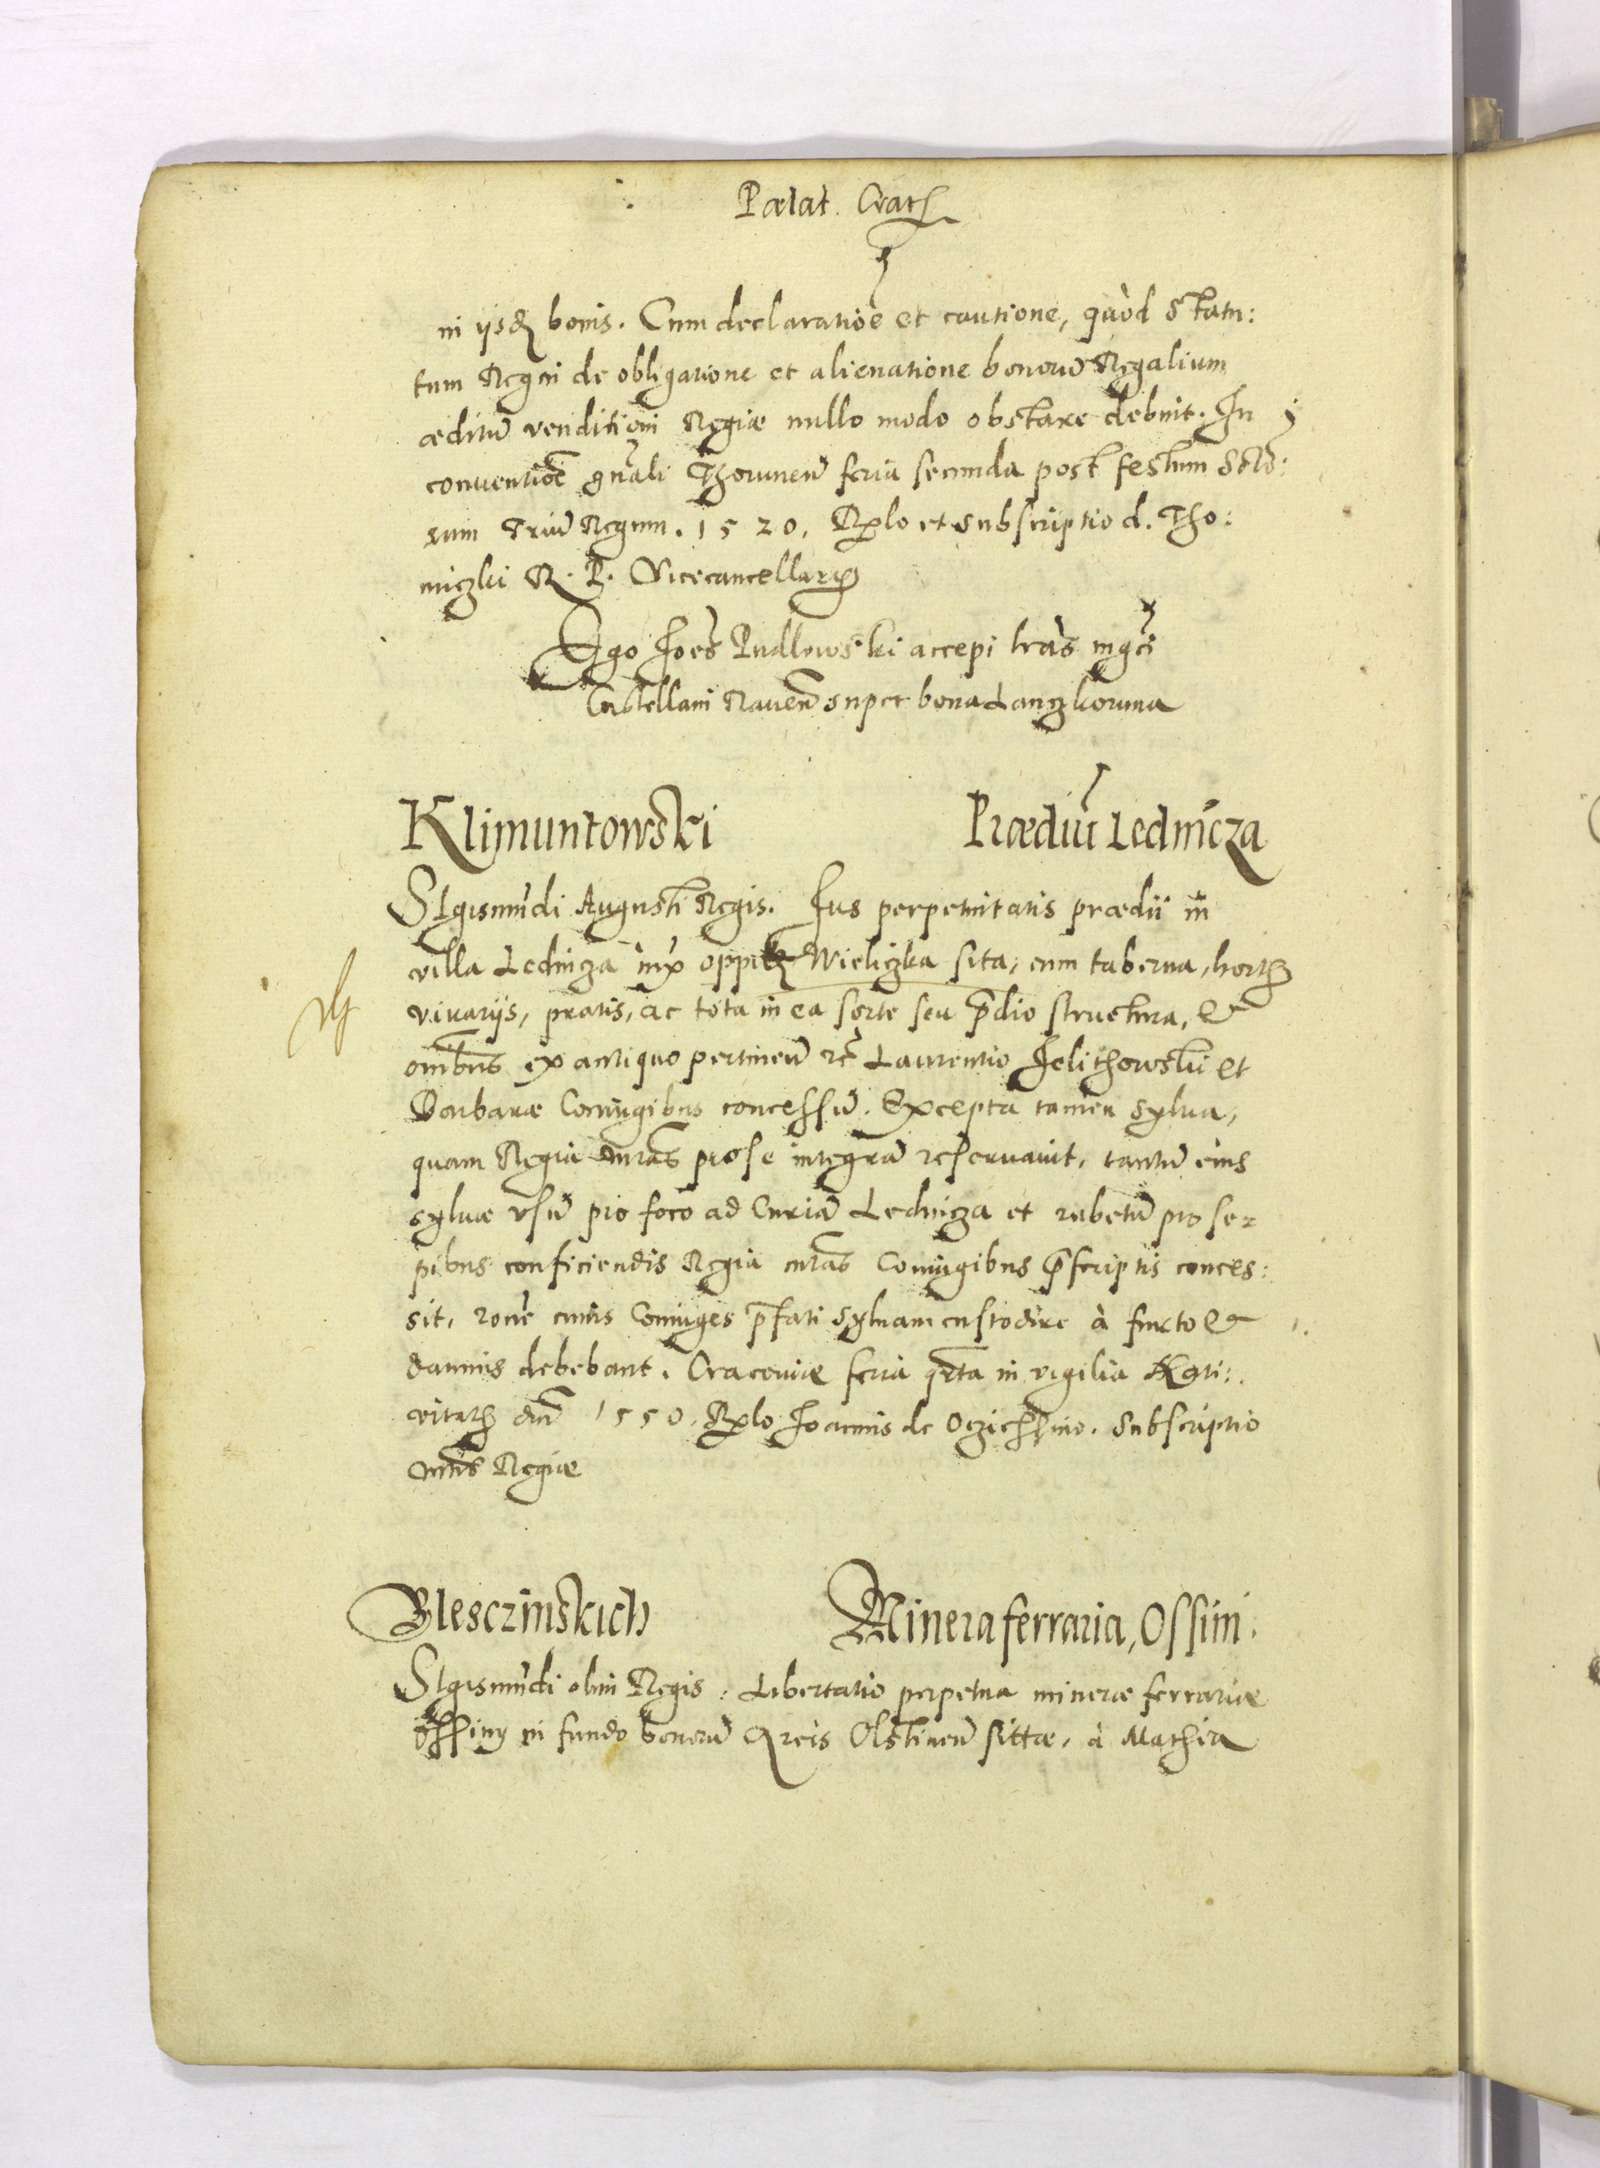 Palat. Crac
in ijsd bonis. Cum declaratioē et cautione, quòd Statu:
tum Regni de obligatione et alienatione bonorū Regalium
æditū venditioni Regiæ nullo modo obstare debuit. In
conuentioē gn̄ali Thorunen̄ feria secunda post festum Sctō:
rum Triū Regum. 1520. Rlo et subscriptio d. Tho:
miczki R. P. Vicecancellarij
Ego Joēs Rudlowski accepi lrās mgci
Castellani Rauen̄ super bona Lanczkoruna
Klimuntowski Prædiū Lednicza
SIgismūdi Augusti Regis. Jus perpetuitatis prædii in
villa Lednicza iux oppid Wieliczka sita, cum taberna, hortis
viuariis, pratis, ac tota in ea sorte seu p̄dio structura, et
omībus ex antiquo pertinen̄ rc̄ Laurentio Jelithowski et
Barbaræ Coniugibus concessū. Excepta tamen sylua,
quam Regia mtās pro se integrā reseruauit, tantū eius
syluæ vsū pro foco ad Curiā Lednicza et rubetū pro se-
pibus conficiendis Regia mtās Coniugibus p̄scriptis conces:
sit, roē cuius Coniuges p̄fati syluam custodire à furto et
damnis debebant. Cracouiæ feria qrta in vigilia Nati:
vitatis dni 1550. Rlo Joannis de Oczieschino. Subscriptio
mtis Regiæ
Blesczinskich Minera ferraria, Ossini.
SIgismūdi olim Regis. Libertatio perpetua mineræ ferrariæ
Ossiny in fundo bonorū Areis Olstinen̄ sittæ, à Mathia